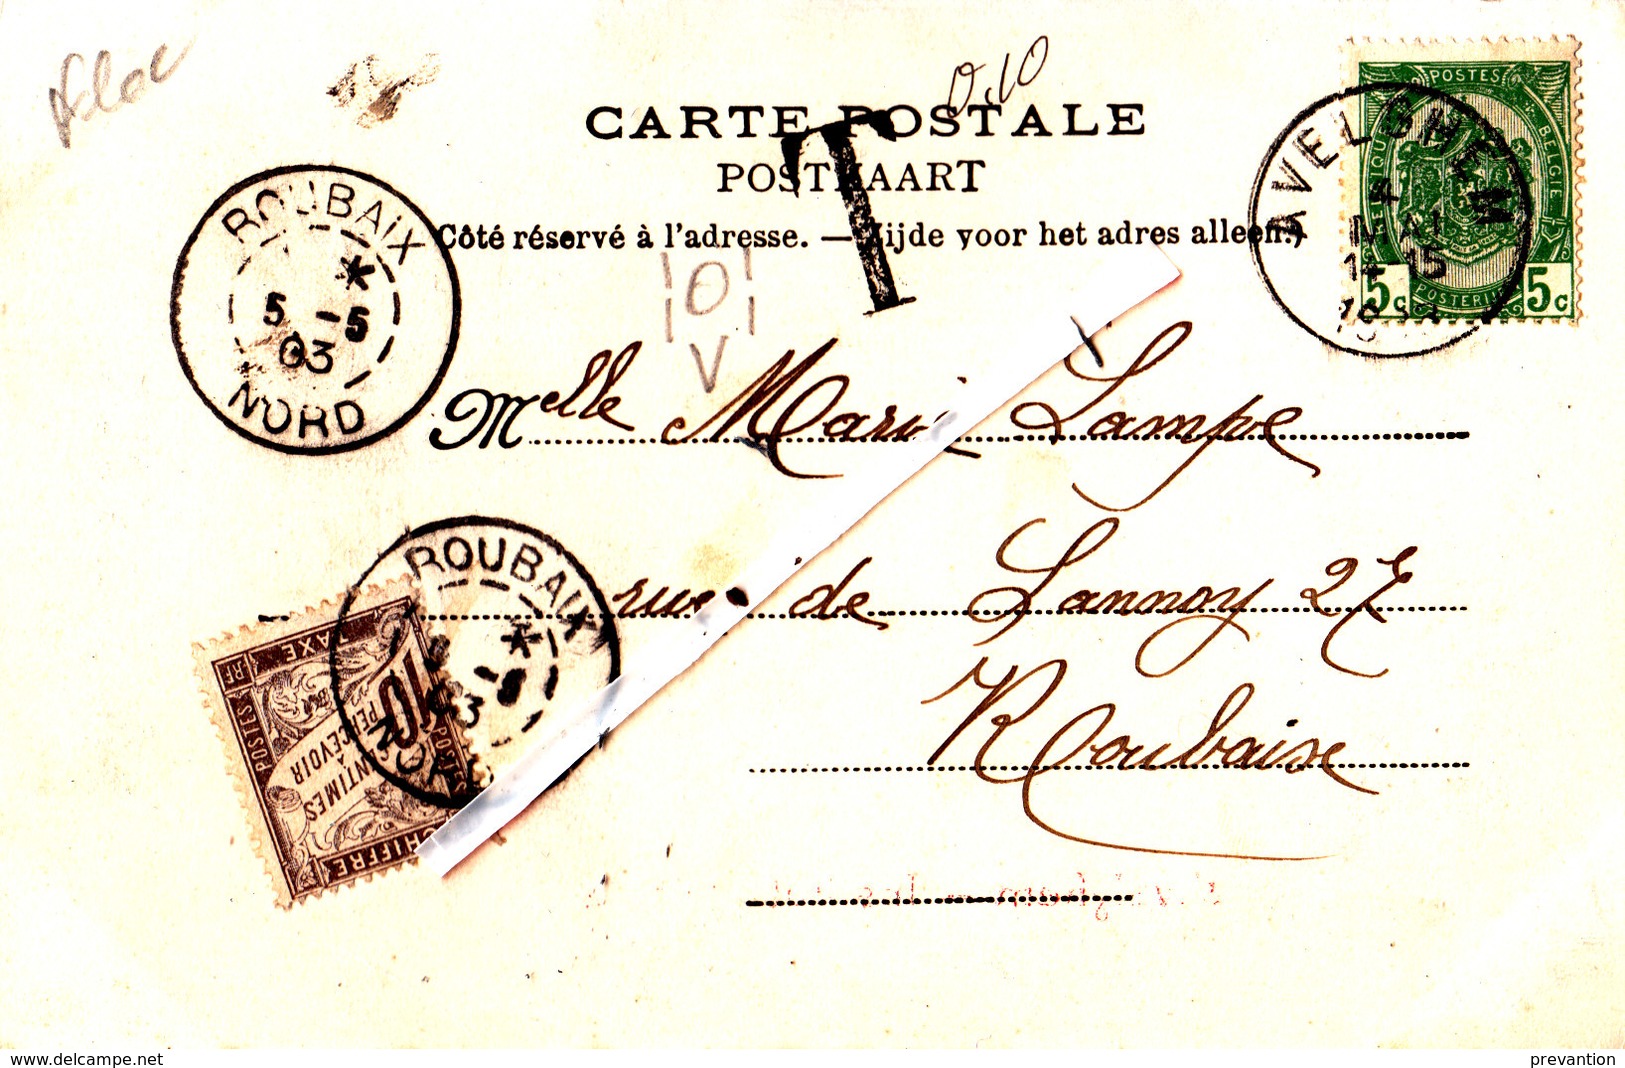 0.10
CARTE POSTALE
POSTKAART
Côté réservé à l'adresse. — Zijde voor het adres alleen.)
POSTES
BELGIE
BELGIQUE
POSTERIJEN
5c 5c
AVELGHEM
4
MAI
14-15
ROUBAIX
5 -5
03
NORD
T
O
V
Melle Marie Lampe
rue de Lannoy 27
Roubaise
ROUBAIX
03
NORD
CHIFFRE TAXE
POSTES
RF
10
CENTIMES
À
PERCEVOIR
POSTES
delcampe.net
prevantion